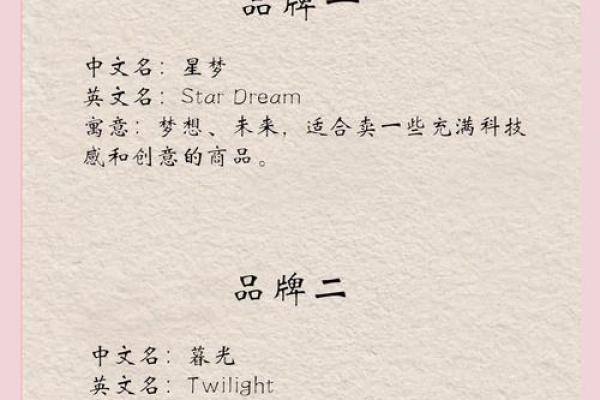 品牌一
中文名：星梦
英文名：Star Dream
寓意：梦想、未来，适合卖一些充满科技
感和创意的商品。
品牌二
中文名：暮光
英文名：Twilight